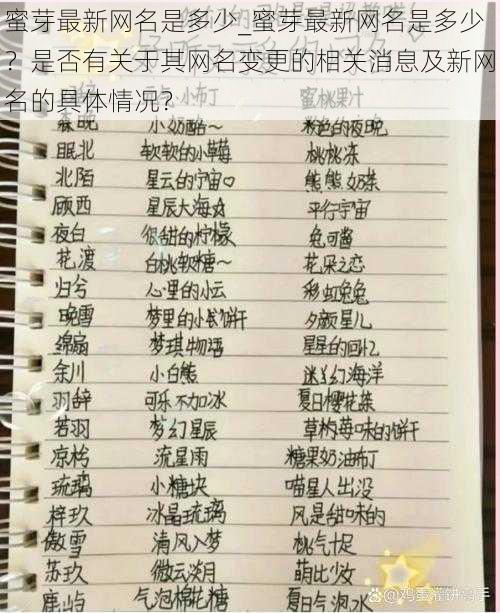 蜜芽最新网名是多少_蜜芽最新网名是多少
？是否有关于其网名变更的相关消息及新网
名的具体情况？
小布丁 蜜桃果汁
森晚 小奶酪～ 粉色的夜晚
眠北 软软的小草莓 桃桃冻
北陌 星云的宇宙 熊熊奶茶
顾西 星辰大海 平行宇宙
夜白 很甜的柠檬 兔可酱
花渡 白桃软糖～ 花朵之恋
归兮 心里的小云 彩虹兔兔
晚雪 梦里的小饼干 夕颜星儿
绵扇 梦琪物语 星星的回忆
余川 小白熊 迷幻海洋
羽辞 可乐不加冰 夏日樱花茶
若羽 梦幻星辰 草莓味的饼干
凉柃 流星雨 糖果奶油布丁
琉璃 小糖块 喵星人出没
梓玖 冰晶琉璃 风是甜味的
傲雪 清风入梦 桃气十足
苏玖 微云淡月 萌比少女
鹿屿 气泡棉花糖 夏日气泡水
@鸡蛋灌饼高手